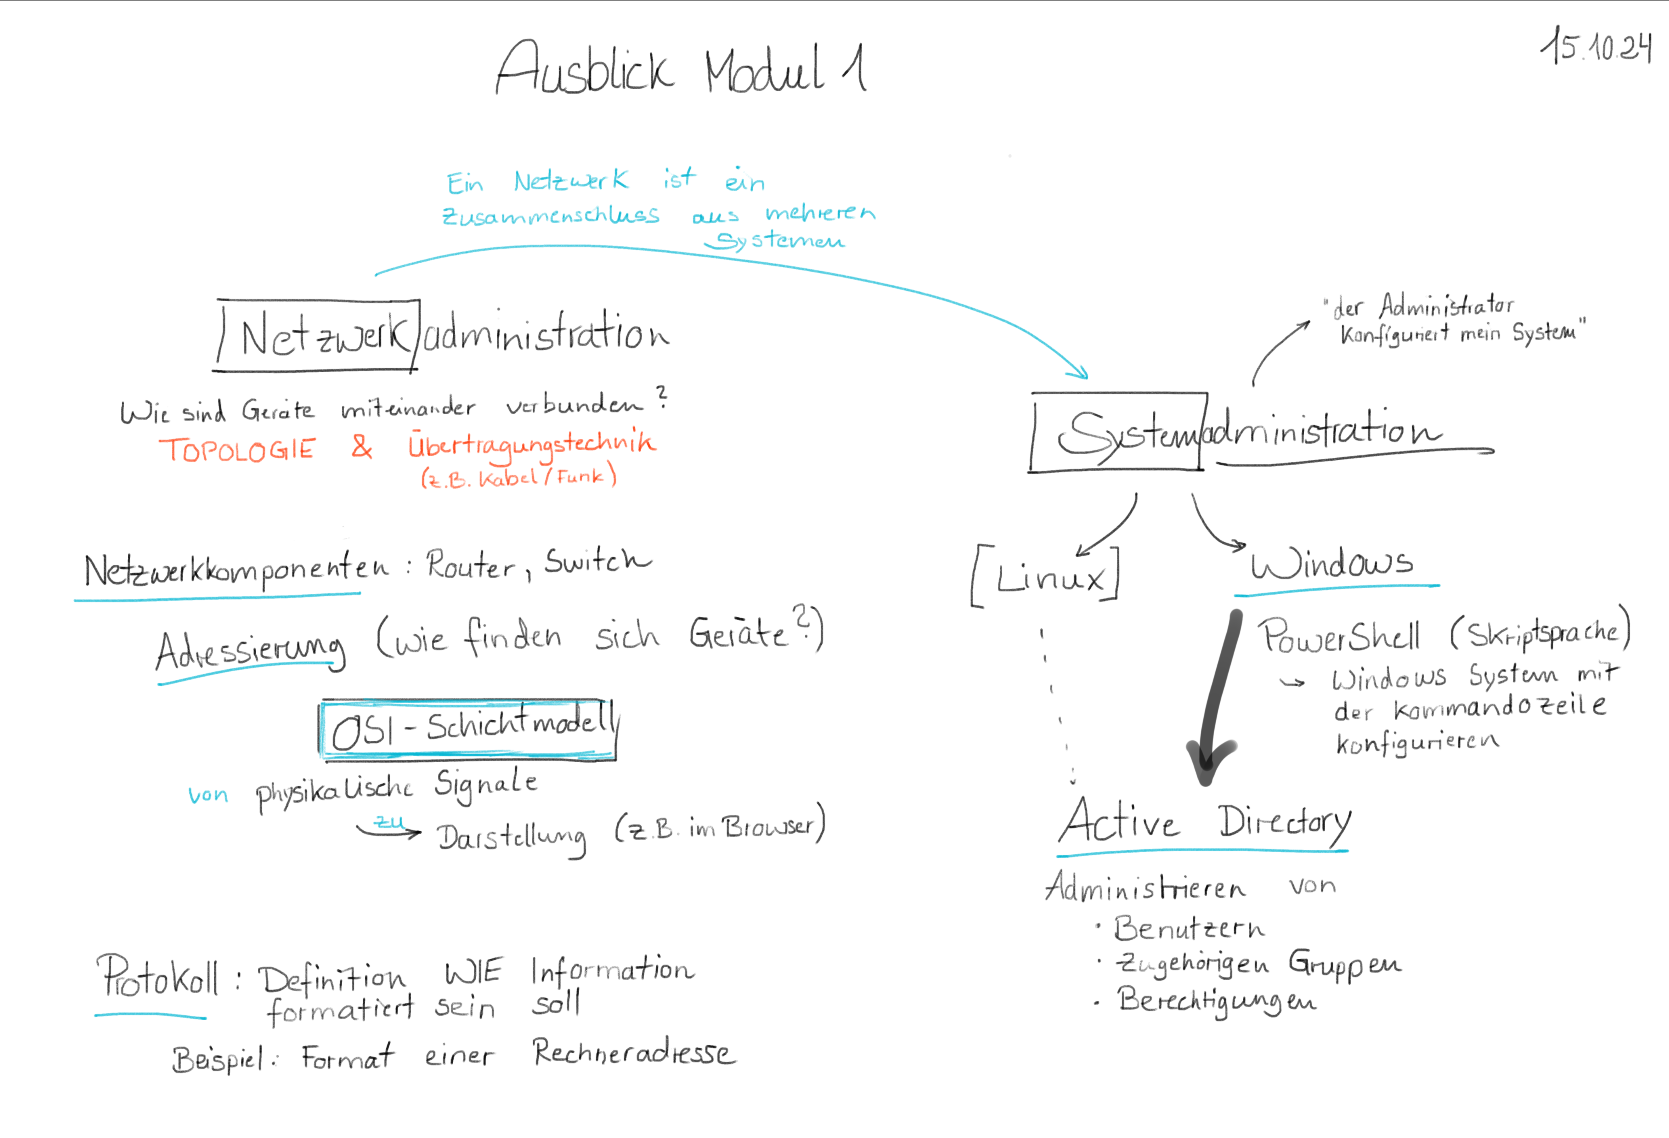 Ausblick Modul 1
15.10.24
Ein Netzwerk ist ein
Zusammenschluss aus mehreren
Systemen
Netzwerkadministration
Wie sind Geräte miteinander verbunden?
TOPOLOGIE & Übertragungstechnik
(z.B. Kabel/Funk)
Netzwerkkomponenten: Router, Switch
Adressierung (wie finden sich Geräte?)
OSI-Schichtmodell
von physikalische Signale
zu Darstellung (z.B. im Browser)
Protokoll: Definition WIE Information
formatiert sein soll
Beispiel: Format einer Rechneradresse
"der Administrator
konfiguriert mein System"
Systemadministration
[Linux]
Windows
PowerShell (Skriptsprache)
Windows System mit
der Kommandozeile
konfigurieren
Active Directory
Administrieren von
· Benutzern
· Zugehörigen Gruppen
· Berechtigungen